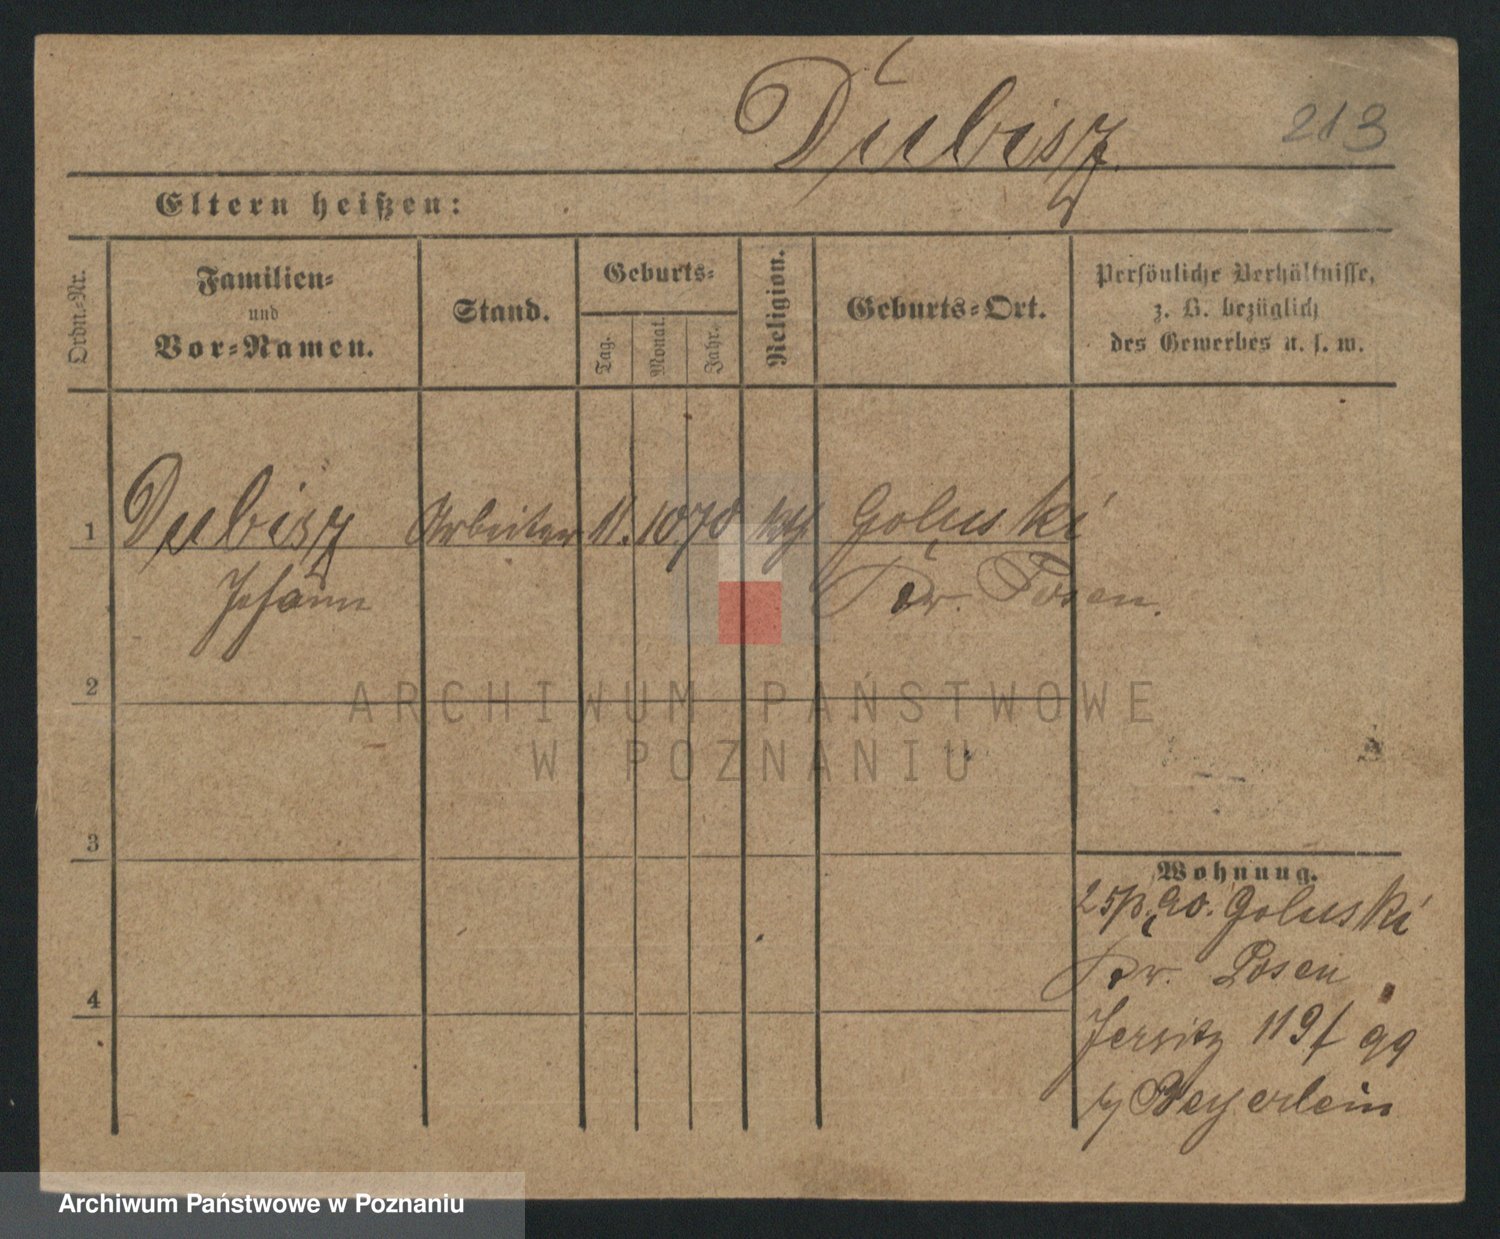 Dubisz
213
Eltern heißen:
Ordn.-Nr.
Familien-
und
Vor-Namen.
Stand.
Geburts-
Tag.
Monat.
Jahr.
Religion.
Geburts-Ort.
Persönliche Verhältnisse,
z. B. bezüglich
des Gewerbes u. s. w.
1 Dubisz Arbeiter 11. 10 70 kth Goluski
Johann Kr. Posen.
2
3
4
Wohnung.
Goluski
Kr. Posen
Jersitz 119
Beyerlein
ARCHIWUM PAŃSTWOWE
W POZNANIU
Archiwum Państwowe w Poznaniu